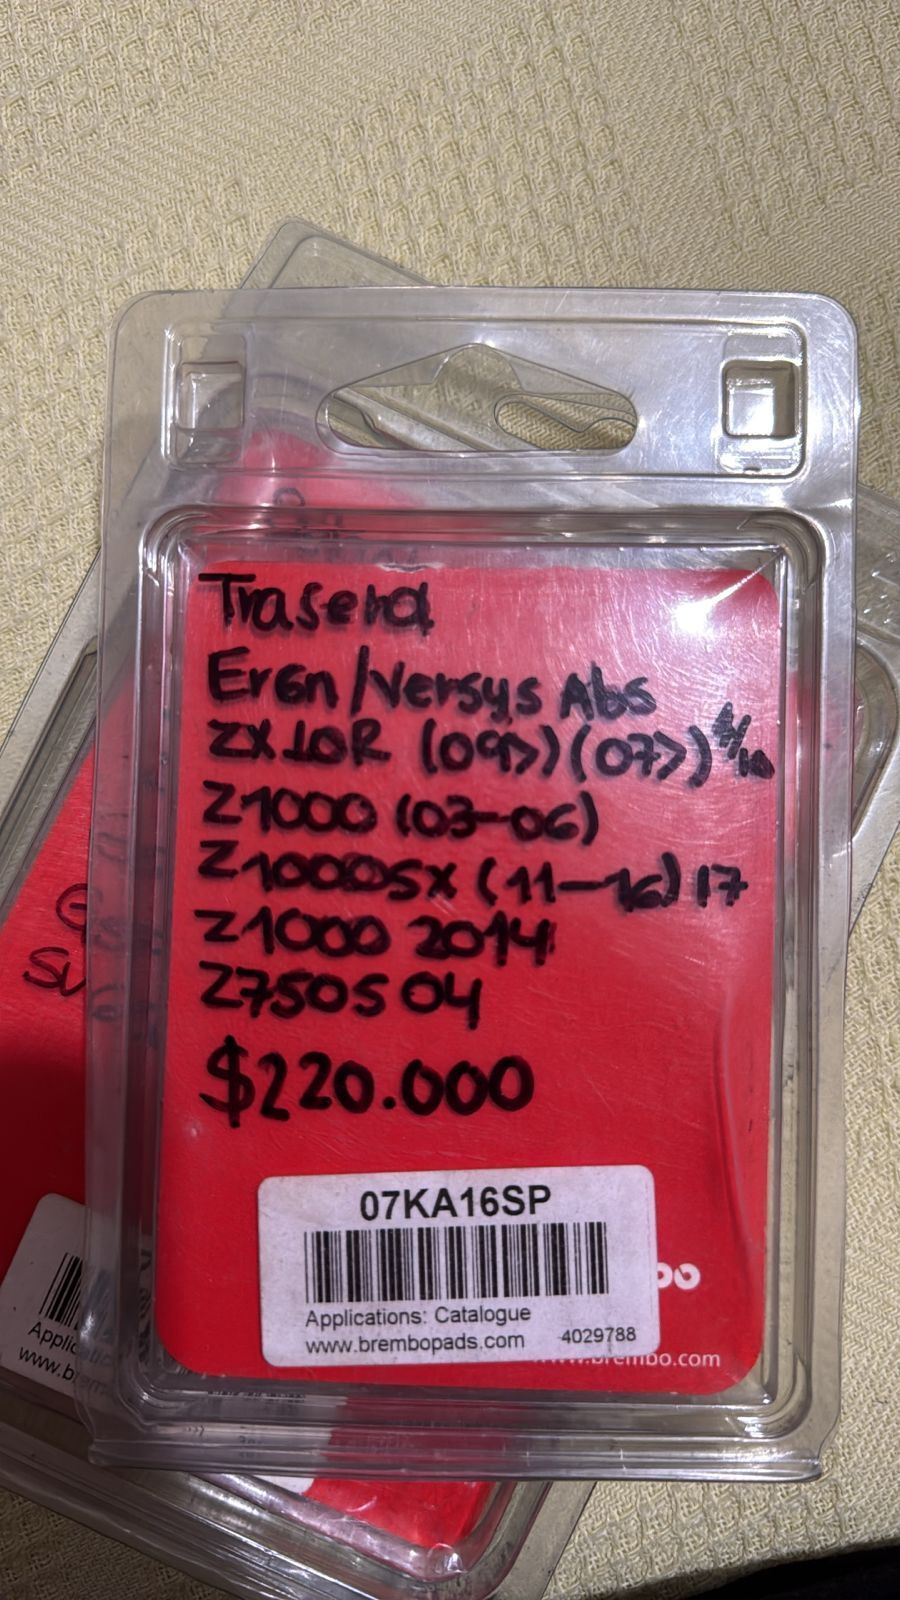 Trasera
Er6n/Versys Abs
ZX10R (09>) (07>)
Z1000 (03-06)
Z1000SX (11-16) 17
Z1000 2014
Z750S 04
$220.000
07KA16SP
Applications: Catalogue
www.brembopads.com 4029788
brembo.com